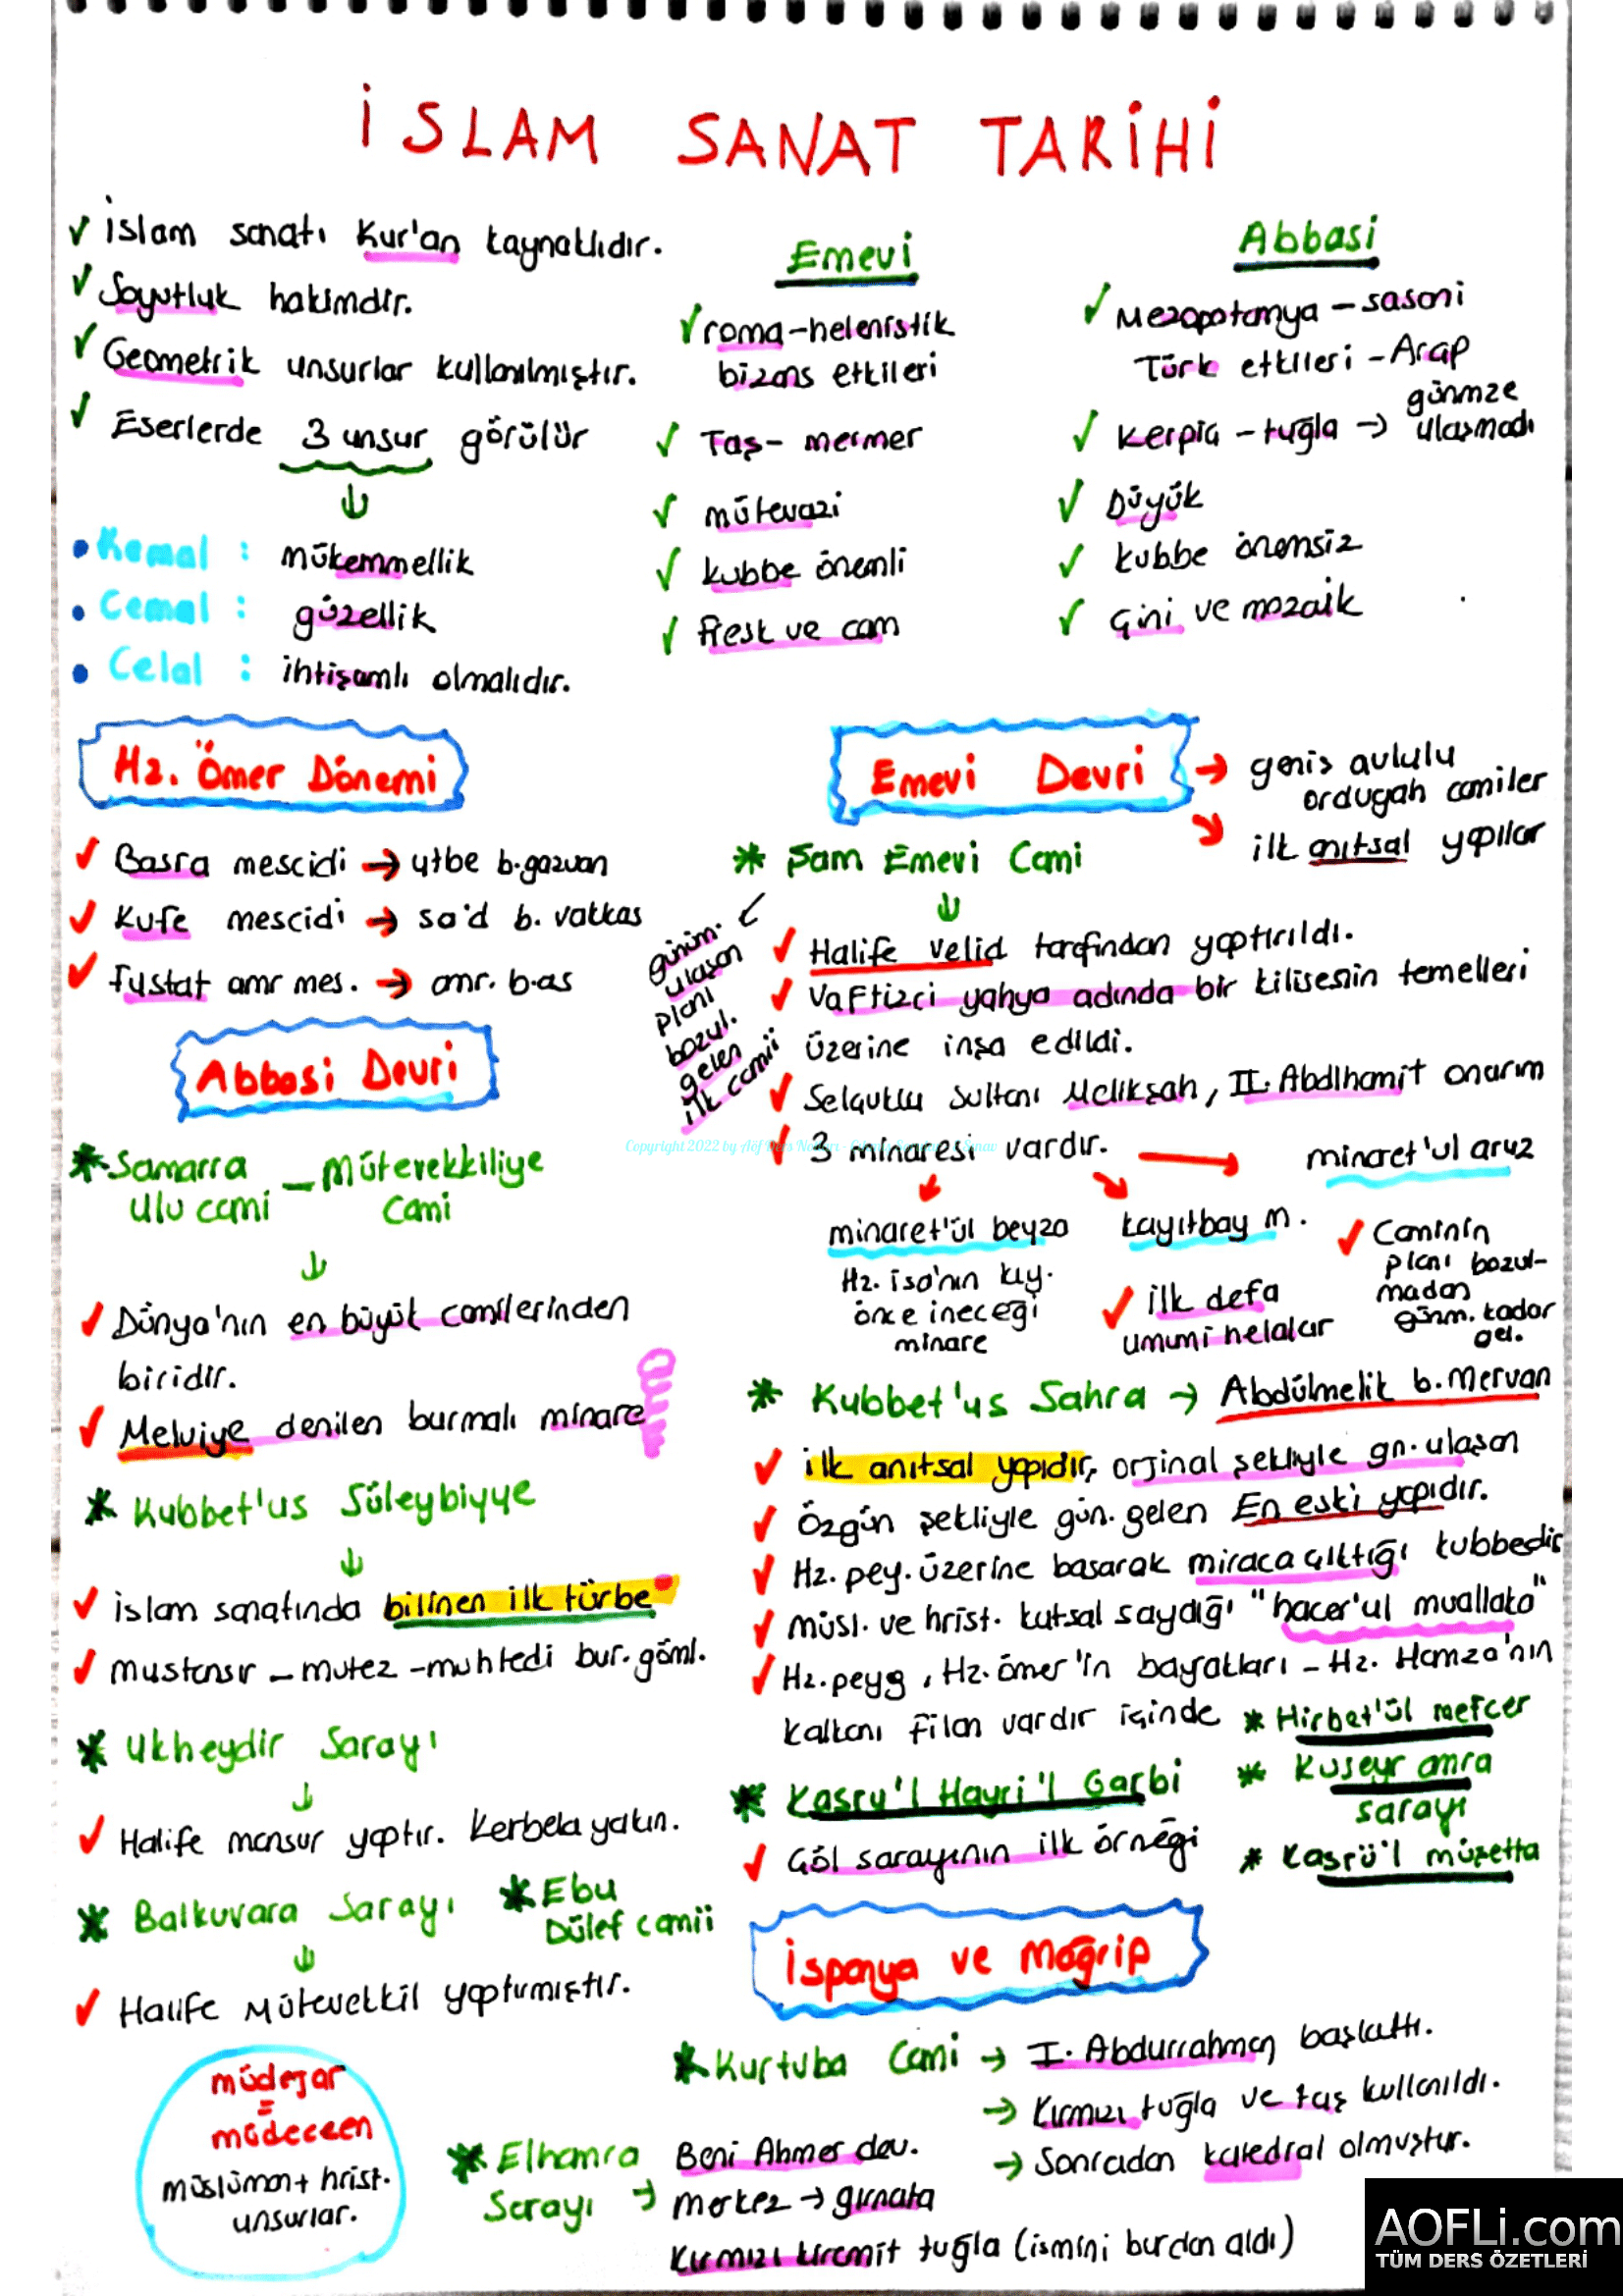 İSLAM SANAT TARİHİ
İslam sanatı Kur'an kaynaklıdır.
Soyutluk hakimdir.
Geometrik unsurlar kullanılmıştır.
Eserlerde 3 unsur görülür
Kemal : mükemmellik
Cemal : güzellik
Celal : ihtişamlı olmalıdır.
Emevi
roma-helenistik
bizans etkileri
Taş- mermer
mütevazi
kubbe önemli
Fresk ve cam
Abbasi
Mezopotamya - sasani
Türk etkileri - Arap
Kerpiç - tuğla → günmze
ulaşmadı
Büyük
kubbe önemsiz
Çini ve mozaik
Hz. Ömer Dönemi
Basra mescidi → utbe b.gazvan
Kufe mescidi → sa'd b. vakkas
fustat amr mes. → amr. b.as
Abbasi Devri
Samarra
ulu cami - Mütevekkiliye
Cami
Dünya'nın en büyük camilerinden
biridir.
Melviye denilen burmalı minare
Kubbet'us Süleybiyye
İslam sanatında bilinen ilk türbe
mustansır - mutez - muhtedi bur. göml.
Ukheydir Sarayı
Halife mansur yaptır. Kerbela yakın.
Balkuvara Sarayı
Halife Mütevekkil yaptırmıştır.
Ebu
Dülef camii
müdejar
=
müdeccen
müslüman + hrist.
unsurlar.
Emevi Devri → geniş avlulu
ordugah camiler
ilk anıtsal yapılar
Şam Emevi Cami
günüm.
ulaşan
planı
bozul.
gelen
ilk camii
Halife Velid tarafından yaptırıldı.
Vaftizci yahya adında bir kilisenin temelleri
üzerine inşa edildi.
Selçuklu Sultanı Melikşah, II. Abdlhamit onarım
3 minaresi vardır. → minaret'ul aruz
minaret'ül beyza
Hz. İsa'nın kıy.
önce ineceği
minare
kayıtbay m.
ilk defa
umumi helalar
Caminin
planı bozul-
madan
günm. kadar
gel.
Kubbet'us Sahra → Abdülmelik b.Mervan
ilk anıtsal yapıdır, orjinal şekliyle gn. ulaşan
Özgün şekliyle gün. gelen En eski yapıdır.
Hz. pey. üzerine basarak miraca çıktığı kubbedir
müsl. ve hrist. kutsal saydığı "hacer'ul muallaka"
Hz. peyg, Hz. ömer'in bayrakları - Hz. Hamza'nın
kalkanı filan vardır içinde
Hirbet'ül mefcer
Kuseyr amra
sarayı
Kasrü'l müşetta
Kasru'l Hayri'l Garbi
Çöl sarayının ilk örneği
İspanya ve Mağrip
Kurtuba Cami → I. Abdurrahman başlattı.
→ Kırmızı tuğla ve taş kullanıldı.
→ Sonradan katedral olmuştur.
Elhamra
Sarayı → Beni Ahmer dev.
merkez → gırnata
Kırmızı kiremit tuğla (ismini burdan aldı)
AOFLi.com
TÜM DERS ÖZETLERİ